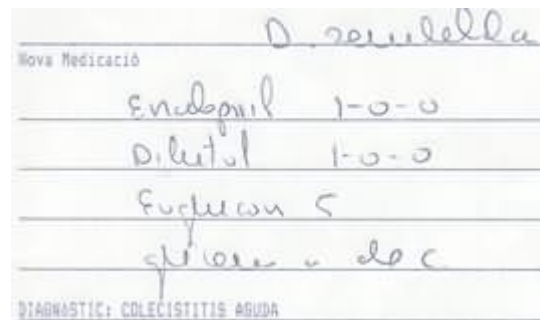 D. senzilla
Nova Medicació
Enalapril 1-0-0
Dilutol 1-0-0
Euglucon 5
DIAGNòSTIC: COLECISTITIS AGUDA